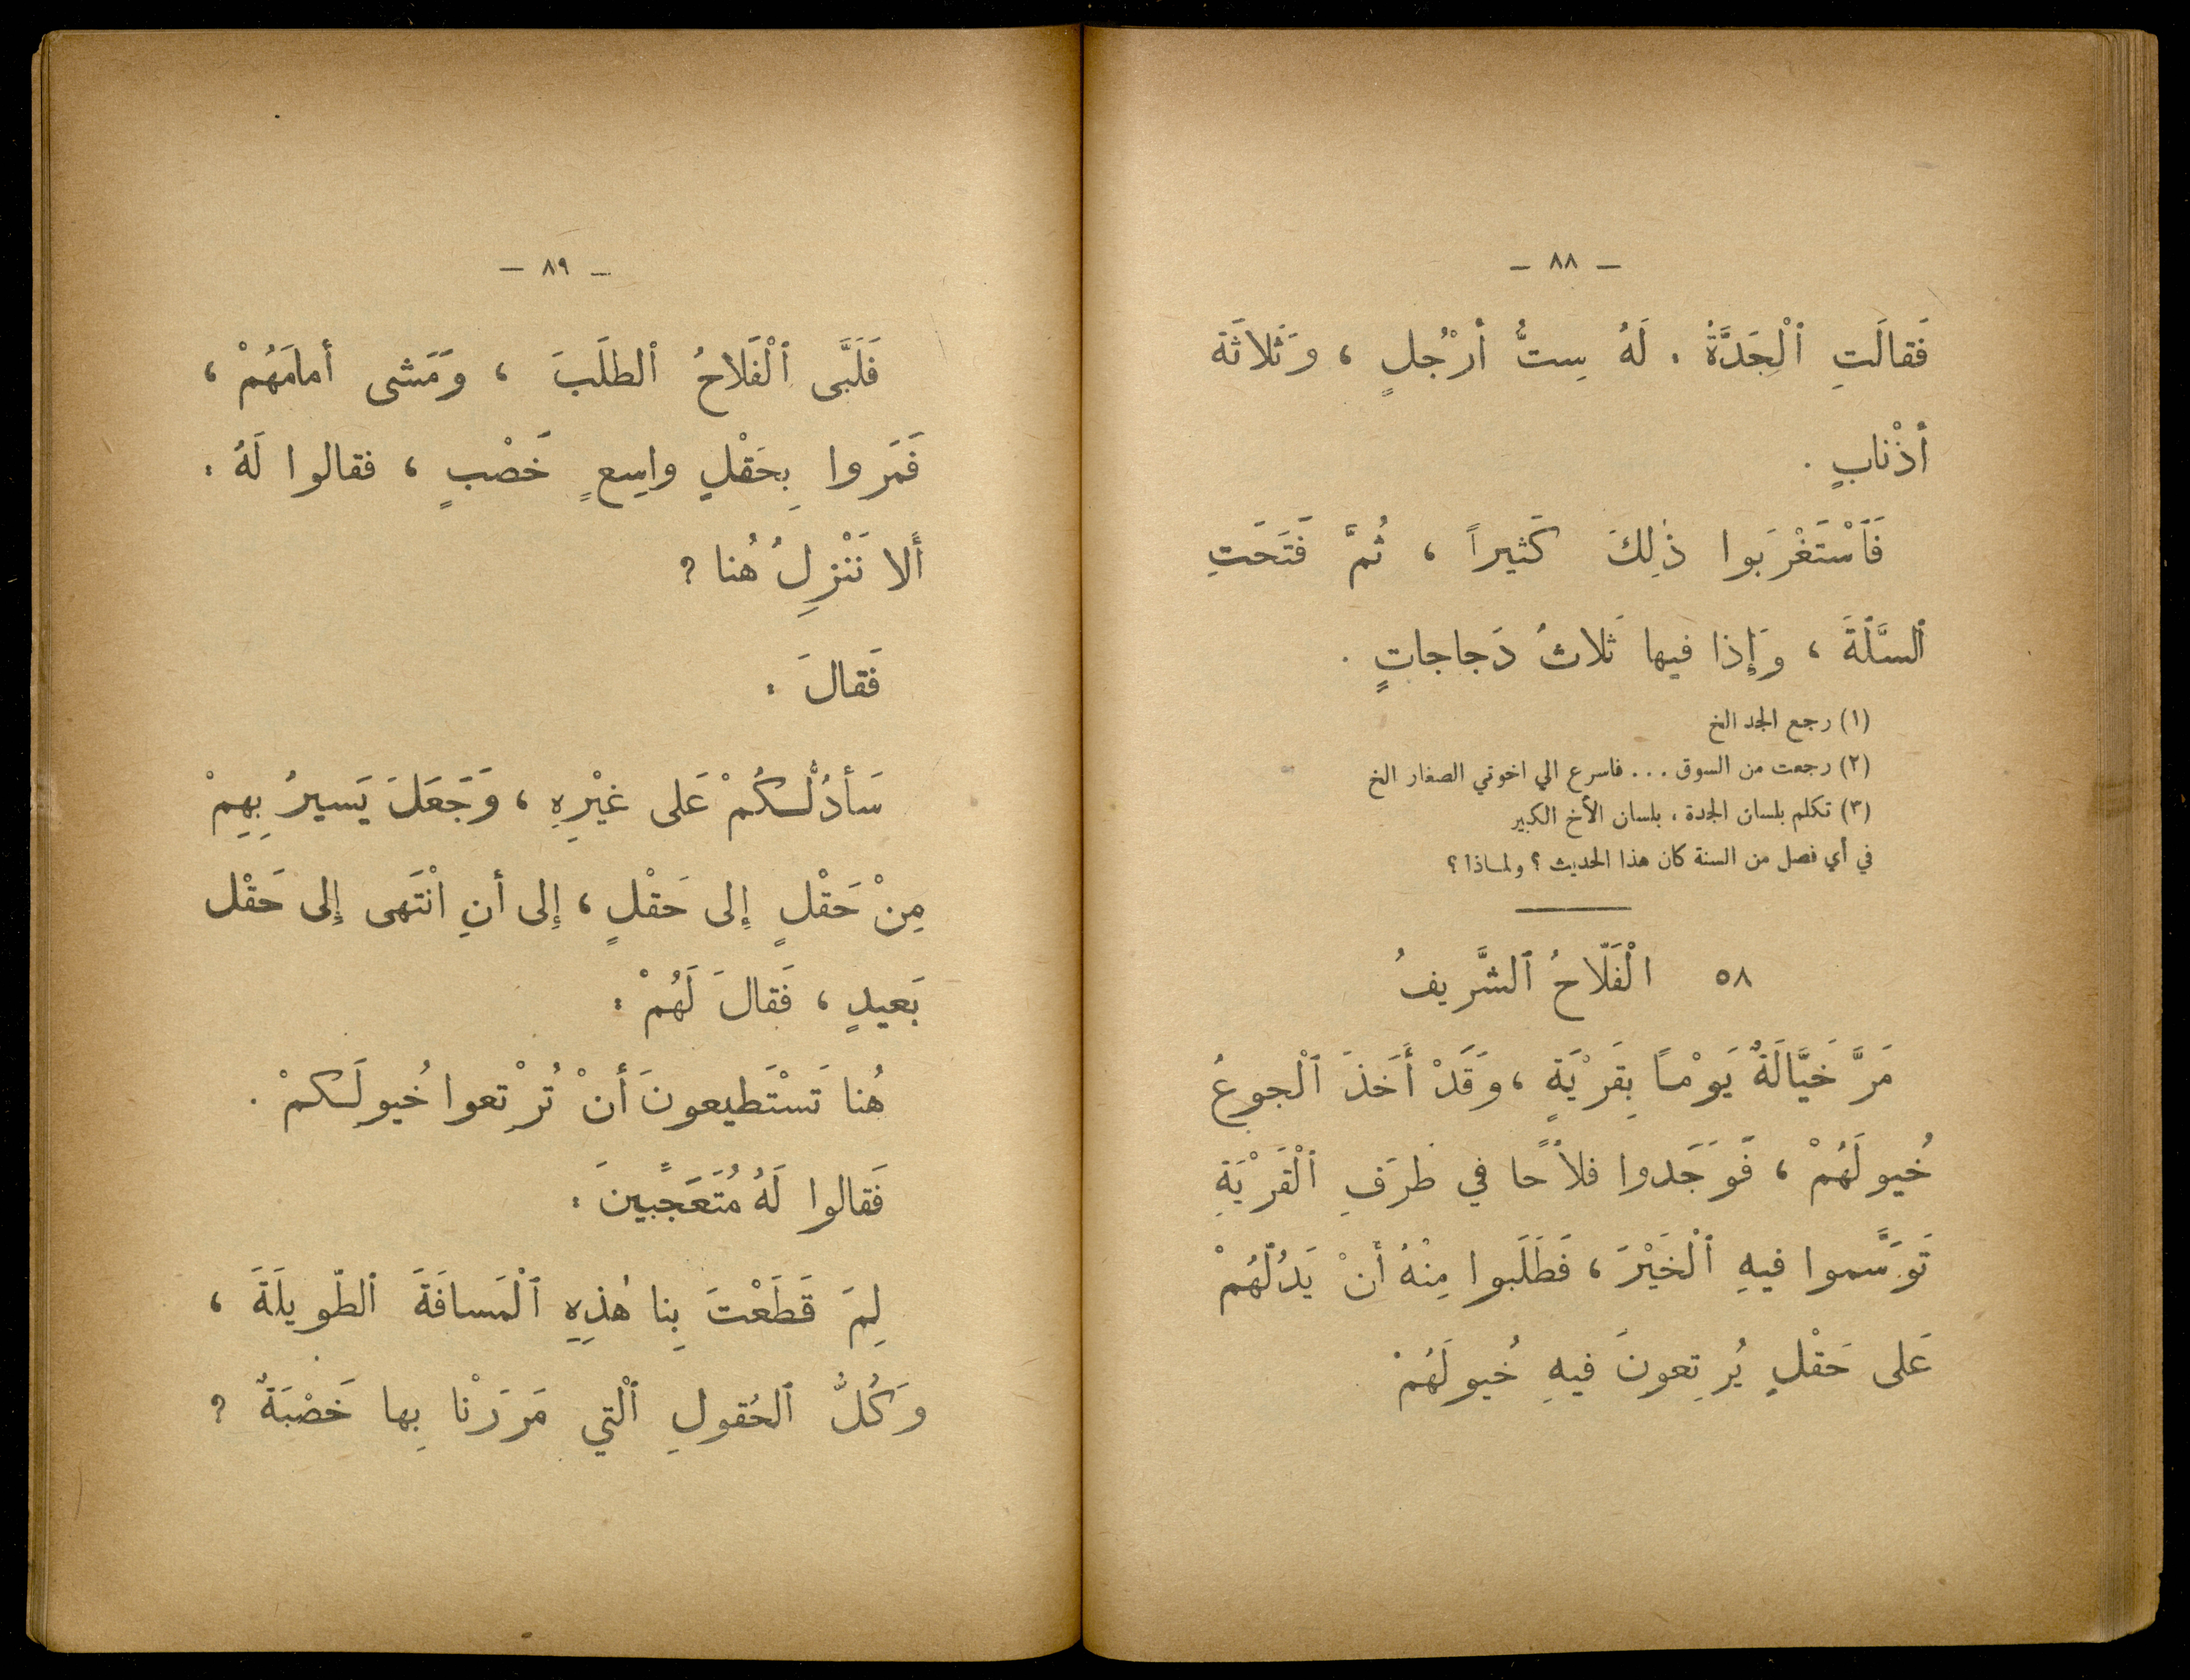 — ٨٨ —
فَقالَتِ ٱلْجَدَّةُ : لَهُ سِتُّ أَرْجُلٍ ، وَثَلاثَة
أذْنابٍ .
فَٱسْتَغْرَبوا ذٰلِكَ كَثيراً ، ثُمَّ فَتَحَتِ
ٱلسَّلَّةَ ، وَإِذا فيها ثَلاثُ دَجاجاتٍ .
(١) رجع الجد الخ
(٢) رجعت من السوق . . . فاسرع الي اخوتي الصغار الخ
(٣) تكلم بلسان الجدة ، بلسان الأخ الكبير
في أي فصل من السنة كان هذا الحديث ؟ ولماذا ؟
٥٨ الْفَلّاحُ ٱلشَّريفُ
مَرَّ خَيَّالَةٌ يَوْماً بِقَرْيَةٍ ، وَقَدْ أَخَذَ ٱلْجوعُ
خُيولَهُمْ ، فَوَجَدوا فلاَّحًا في طرَفِ ٱلْقَرْيَةِ
تَوَسَّموا فيهِ ٱلْخَيْرَ ، فَطَلَبوا مِنْهُ أَنْ يَدُلَّهُمْ
عَلى حَقْلٍ يُرتِعونَ فيهِ خُيولَهُمْ
— ٨٩ —
فَلَبَّى ٱلْفَلَاحُ ٱلطلَبَ ، وَمَشى أمامَهُمْ ،
فَمَروا بِحَقْلٍ واسِعٍ خَصْبٍ ، فقالوا لَهُ :
أَلا نَنْزِلُ هُنا ؟
فَقالَ :
سَأدُلُّكُمْ عَلى غيْرِهِ ، وَجَعَلَ يَسيرُ بِهِمْ
مِنْ حَقْلٍ إِلى حَقْلٍ ، إِلى أنِ انْتَهى إِلى حَقْل
بَعيدٍ ، فَقالَ لَهُمْ :
هُنا تَسْتَطيعونَ أنْ تُرْتِعوا خُيولَكمْ .
فَقالوا لَهُ مُتَعَجِّبينَ :
لِمَ قَطَعْتَ بِنا هٰذِهِ ٱلْمَسافَةَ ٱلطّويلَةَ ،
وَكُلُّ ٱلحُقولِ ٱلْتي مَرَرْنا بِها خَصْبَةٌ ؟